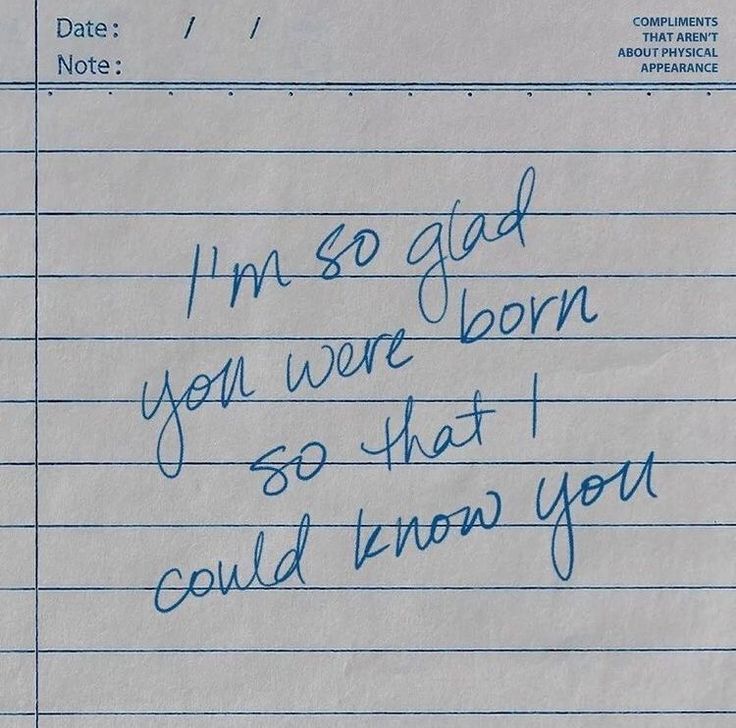 Date: / /
Note:
COMPLIMENTS
THAT AREN'T
ABOUT PHYSICAL
APPEARANCE
I'm so glad
you were born
so that I
could know you